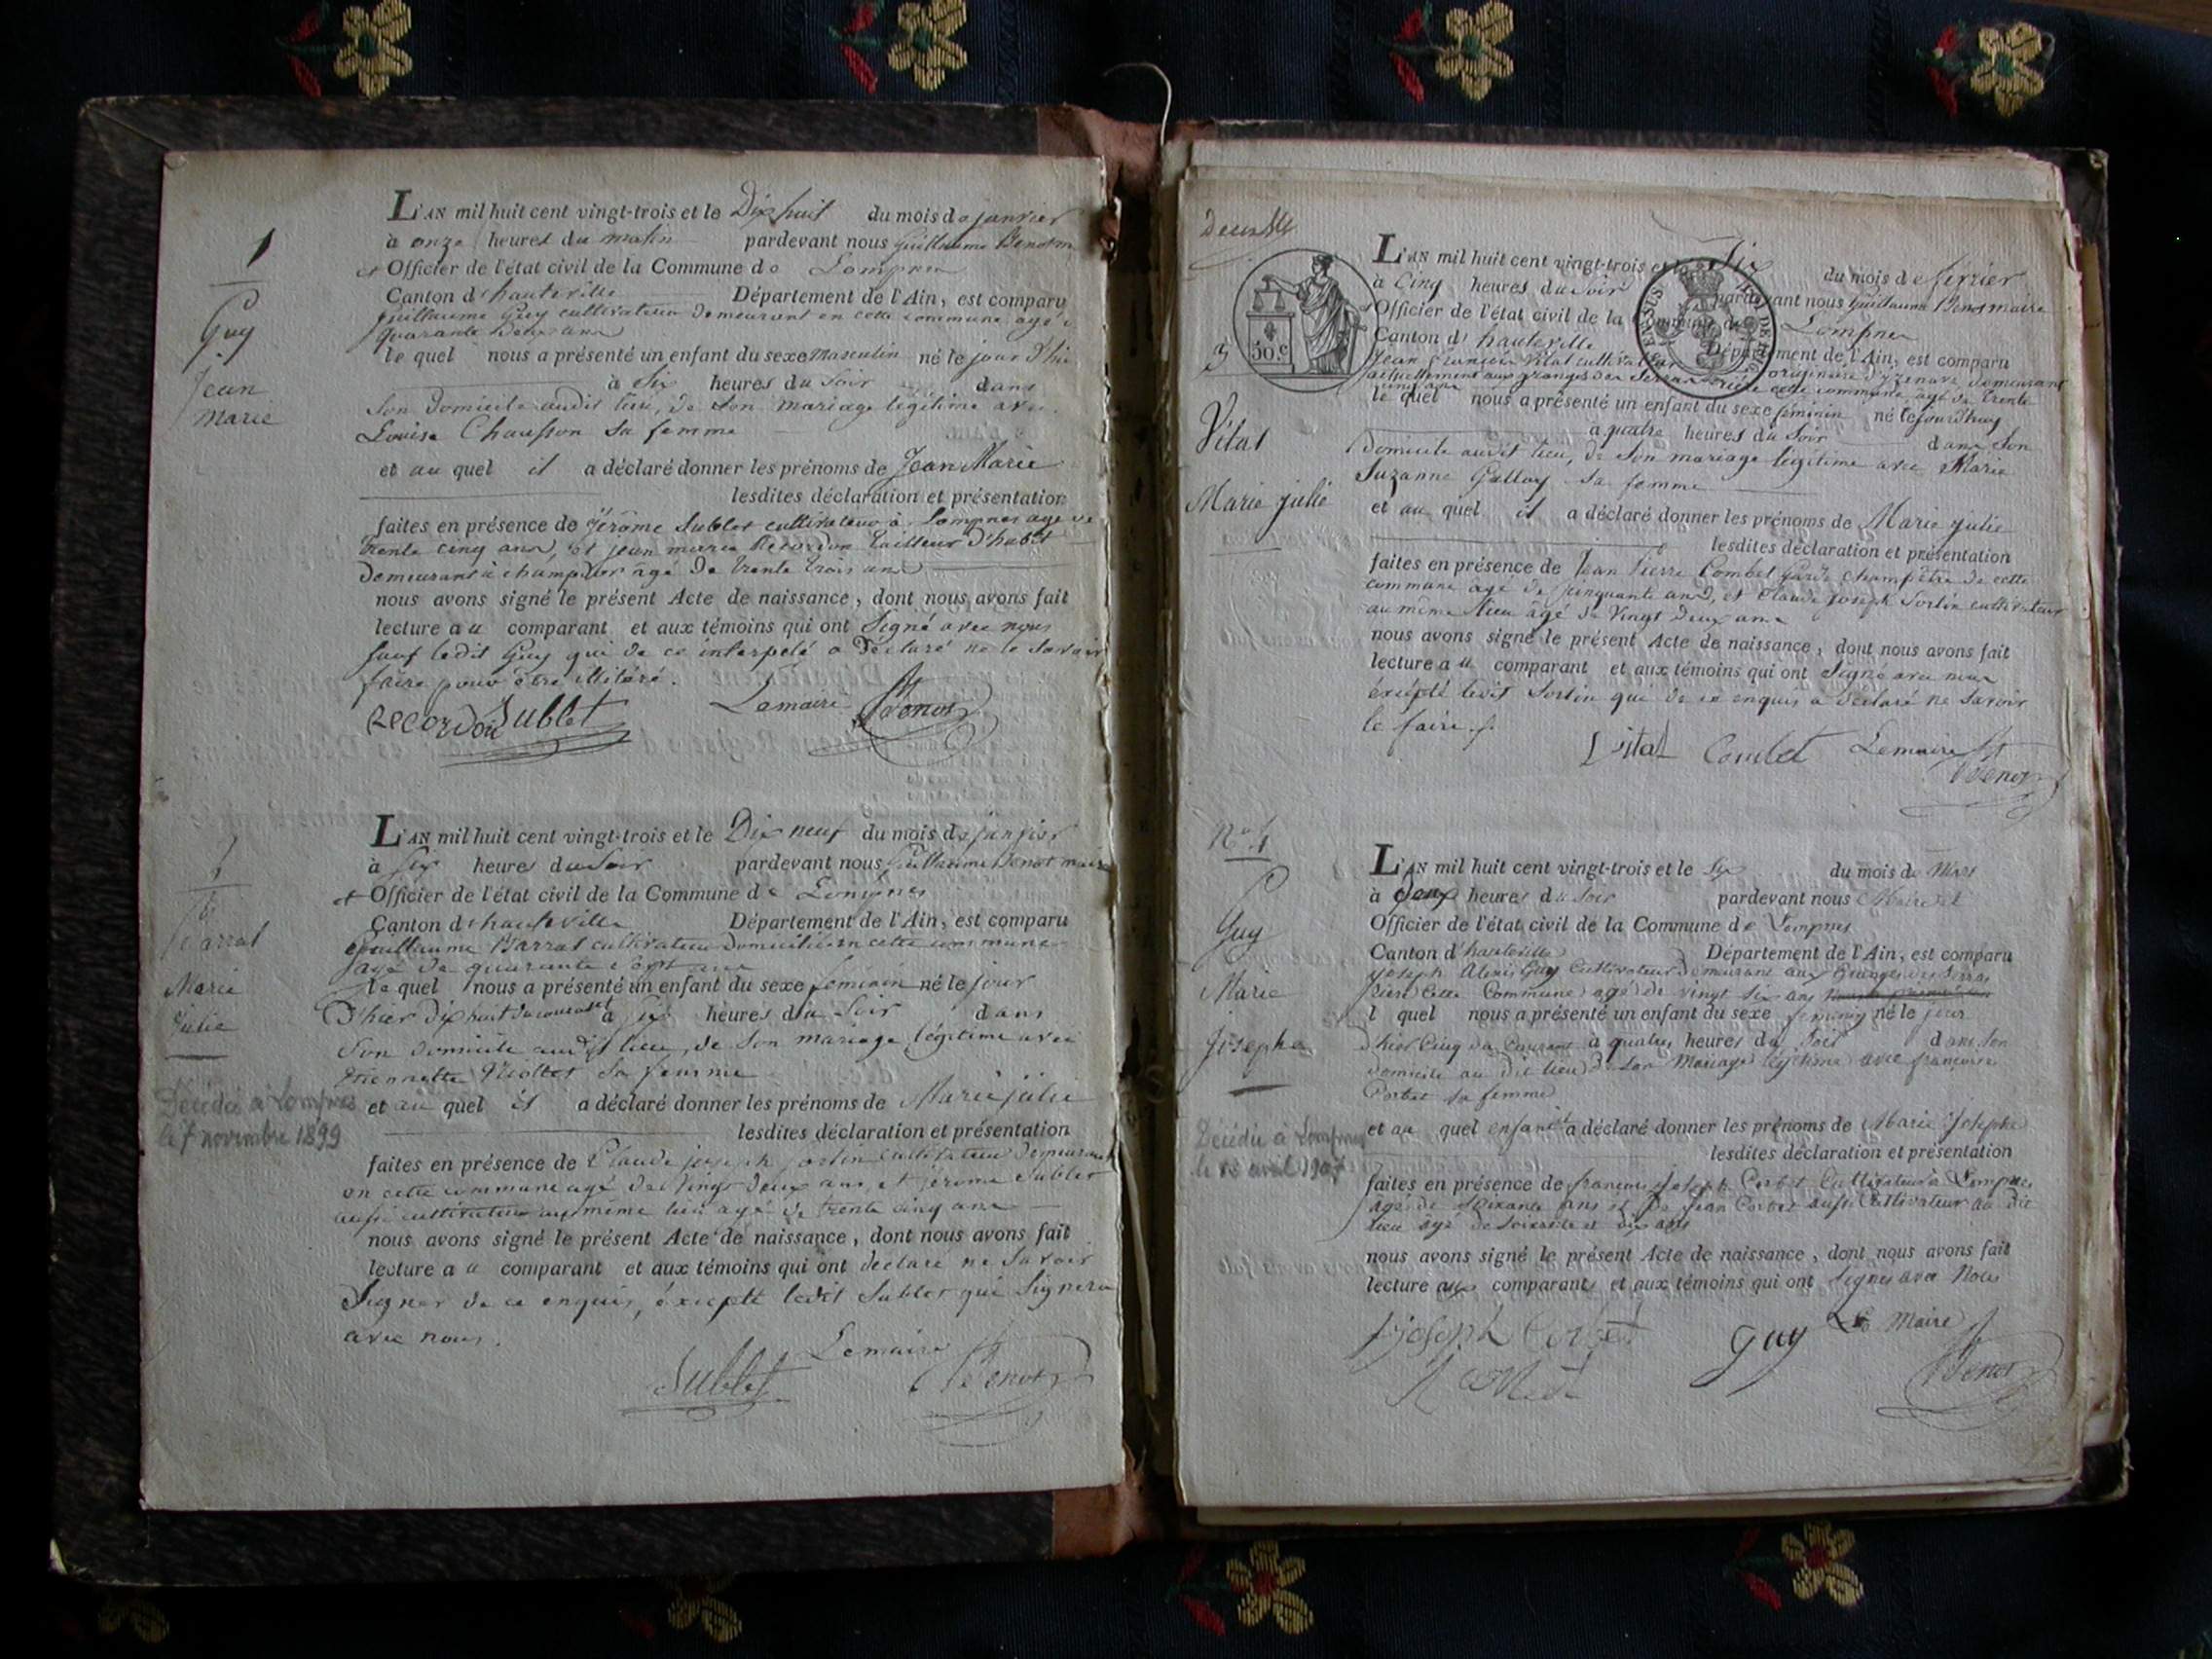 1
Guy
Jean
Marie
L'AN mil huit cent vingt-trois et le Dix huit du mois de janvier
à onze heures du matin pardevant nous Guillaume Benot m
et Officier de l'état civil de la Commune de Lompnes
Canton d'hauteville Département de l'Ain, est comparu
Guillaume Guy cultivateur demeurant en cette commune agé
quarante deux ans
le quel nous a présenté un enfant du sexe masculin né le jour d'hier
à Six heures du Soir dans
Son domicile audit lieu, de Son mariage légitime avec
Louise Chausson sa femme
et au quel il a déclaré donner les prénoms de Jean Marie
lesdites déclaration et présentation
faites en présence de Jérôme Sublet cultivateur à Lompnes agé de
trente cinq ans, et jean marie Recordon tailleur d'habit
demeurant à champdor âgé de trente trois ans
nous avons signé le présent Acte de naissance, dont nous avons fait
lecture au comparant et aux témoins qui ont Signé avec nous
Sauf ledit Guy qui de ce interpelé a déclaré ne le Savoir
faire pour être illitéré.
Recordon Sublet Lemaire Benot
Barral
Marie
Julie
Décédée à Lompnes
le 7 novembre 1899
L'AN mil huit cent vingt-trois et le Dix neuf du mois de janvier
à Six heures du Soir pardevant nous Guillaume Benot maire
et Officier de l'état civil de la Commune de Lompnes
Canton d'hauteville Département de l'Ain, est comparu
Guillaume Barral cultivateur domicilié en cette commune
agé de quarante Sept ans
le quel nous a présenté un enfant du sexe feminin né le jour
D'hier Dix huit du courant à Six heures du Soir dans
Son domicile audit lieu, de Son mariage légitime avec
Sa femme
et au quel il a déclaré donner les prénoms de Marie julie
lesdites déclaration et présentation
faites en présence de Claude joseph Sortin cultivateur demeurant
en cette commune agé de Vingt deux ans, et jérome Sublet
aussi cultivateur au même lieu agé de trente cinq ans
nous avons signé le présent Acte de naissance, dont nous avons fait
lecture au comparant et aux témoins qui ont déclaré ne Savoir
Signer de ce enquis, éxcepté ledit Sublet qui Signera
avec nous.
Sublet Lemaire Benot
3
50 c
Vital
Marie julie
L'AN mil huit cent vingt-trois et le Six du mois de fevrier
à Cinq heures du Soir pardevant nous Guillaume Benot maire
Officier de l'état civil de la Commune de Lompnes
Canton d'hauteville Département de l'Ain, est comparu
Jean François Vital cultivateur originaire d'izenave demeurant
actuellement aux granges des Serras rière cette commune agé de trente
cinq ans
le quel nous a présenté un enfant du sexe feminin né le jourdhuy
à quatre heures du Soir dans Son
Domicile audit lieu, de Son mariage légitime avec Marie
Suzanne Gallay Sa femme
et au quel il a déclaré donner les prénoms de Marie julie
lesdites déclaration et présentation
faites en présence de Jean Pierre Combet Garde champêtre de cette
commune agé de cinquante ans, et Claude joseph Sortin cultivateur
au même lieu âgé de Vingt deux ans
nous avons signé le présent Acte de naissance, dont nous avons fait
lecture au comparant et aux témoins qui ont Signé avec nous
éxcépté ledit Sortin qui de ce enquis a déclaré ne Savoir
le faire.
Vital Combet Lemaire Benot
N° 4
Guy
Marie
Josephe
Décédée à Lompnes
le avril 1907
L'AN mil huit cent vingt-trois et le Six du mois de Mars
à Deux heures du Soir pardevant nous Maire et
Officier de l'état civil de la Commune de Lompnes
Canton d'hauteville Département de l'Ain, est comparu
Joseph Alexis Guy Cultivateur demeurant aux Granges des Serras
rière Cette Commune agé de vingt Six ans
l quel nous a présenté un enfant du sexe feminin né le jour
d'hier Cinq du Courant à quatre heures du Soir dans son
domicile au dit lieu de Son Mariage légitime avec françoise
Corbet sa femme
et au quel enfant il a déclaré donner les prénoms de Marie Josephe
lesdites déclaration et présentation
faites en présence de françois joseph Corbet Cultivateur à Lompnes
agé de Soixante ans et de Jean Corbet aussi Cultivateur au dit
lieu âgé de Soixante et dix ans
nous avons signé le présent Acte de naissance, dont nous avons fait
lecture aux comparants et aux témoins qui ont Signés avec Nous
Joseph Corbet Guy Le Maire
Benot